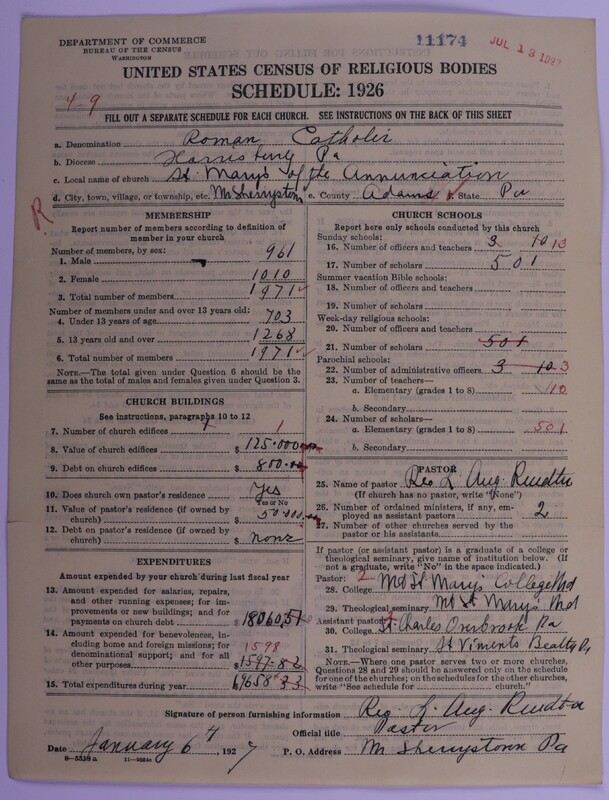 DEPARTMENT OF COMMERCE
BUREAU OF THE CENSUS
WASHINGTON
11174
JUL 13 1927
UNITED STATES CENSUS OF RELIGIOUS BODIES
SCHEDULE: 1926
4-9
FILL OUT A SEPARATE SCHEDULE FOR EACH CHURCH. SEE INSTRUCTIONS ON THE BACK OF THIS SHEET
a. Denomination Roman Catholic
b. Diocese Harrisburg Pa
c. Local name of church St Mary's of the Annunciation
d. City, town, village, or township, etc. McSherrystown e. County Adams f. State Pa
R
MEMBERSHIP
Report number of members according to definition of member in your church
Number of members, by sex:
1. Male 961
2. Female 1010
3. Total number of members 1971
Number of members under and over 13 years old:
4. Under 13 years of age 703
5. 13 years old and over 1268
6. Total number of members 1971
NOTE.—The total given under Question 6 should be the same as the total of males and females given under Question 3.
CHURCH BUILDINGS
See instructions, paragraphs 10 to 12
7. Number of church edifices 1
8. Value of church edifices $ 125.000
9. Debt on church edifices $ 800.00
10. Does church own pastor's residence Yes
Yes or No
11. Value of pastor's residence (if owned by church) $ 50.000
12. Debt on pastor's residence (if owned by church) $ none
EXPENDITURES
Amount expended by your church during last fiscal year
13. Amount expended for salaries, repairs, and other running expenses; for improvements or new buildings; and for payments on church debt $ 18060,51
14. Amount expended for benevolences, including home and foreign missions; for denominational support; and for all other purposes $ 1597.82
1598
15. Total expenditures during year $ 19658 33
CHURCH SCHOOLS
Report here only schools conducted by this church
Sunday schools:
16. Number of officers and teachers 3 10 13
17. Number of scholars 501
Summer vacation Bible schools:
18. Number of officers and teachers
19. Number of scholars
Week-day religious schools:
20. Number of officers and teachers
21. Number of scholars 501
Parochial schools:
22. Number of administrative officers 3 10 3
23. Number of teachers—
a. Elementary (grades 1 to 8) 10
b. Secondary
24. Number of scholars—
a. Elementary (grades 1 to 8) 501
b. Secondary
PASTOR
25. Name of pastor Rev L Aug.
(If church has no pastor, write "None")
26. Number of ordained ministers, if any, employed as assistant pastors 2
27. Number of other churches served by the pastor or his assistants
If pastor (or assistant pastor) is a graduate of a college or theological seminary, give name of institution below. (If not a graduate, write "No" in the space indicated.)
Pastor: 2
28. College Mt St Mary's College Md
29. Theological seminary Mt St Marys Md
Assistant pastor:
30. College St Charles Overbrook Pa
31. Theological seminary St Vincents Beatty Pa
NOTE.—Where one pastor serves two or more churches, Questions 28 and 29 should be answered only on the schedule for one of the churches; on the schedules for the other churches, write "See schedule for church."
Signature of person furnishing information L. Aug.
Official title Pastor
Date January 6th, 1927 P. O. Address McSherrystown Pa
8-5538 a 11-9884a